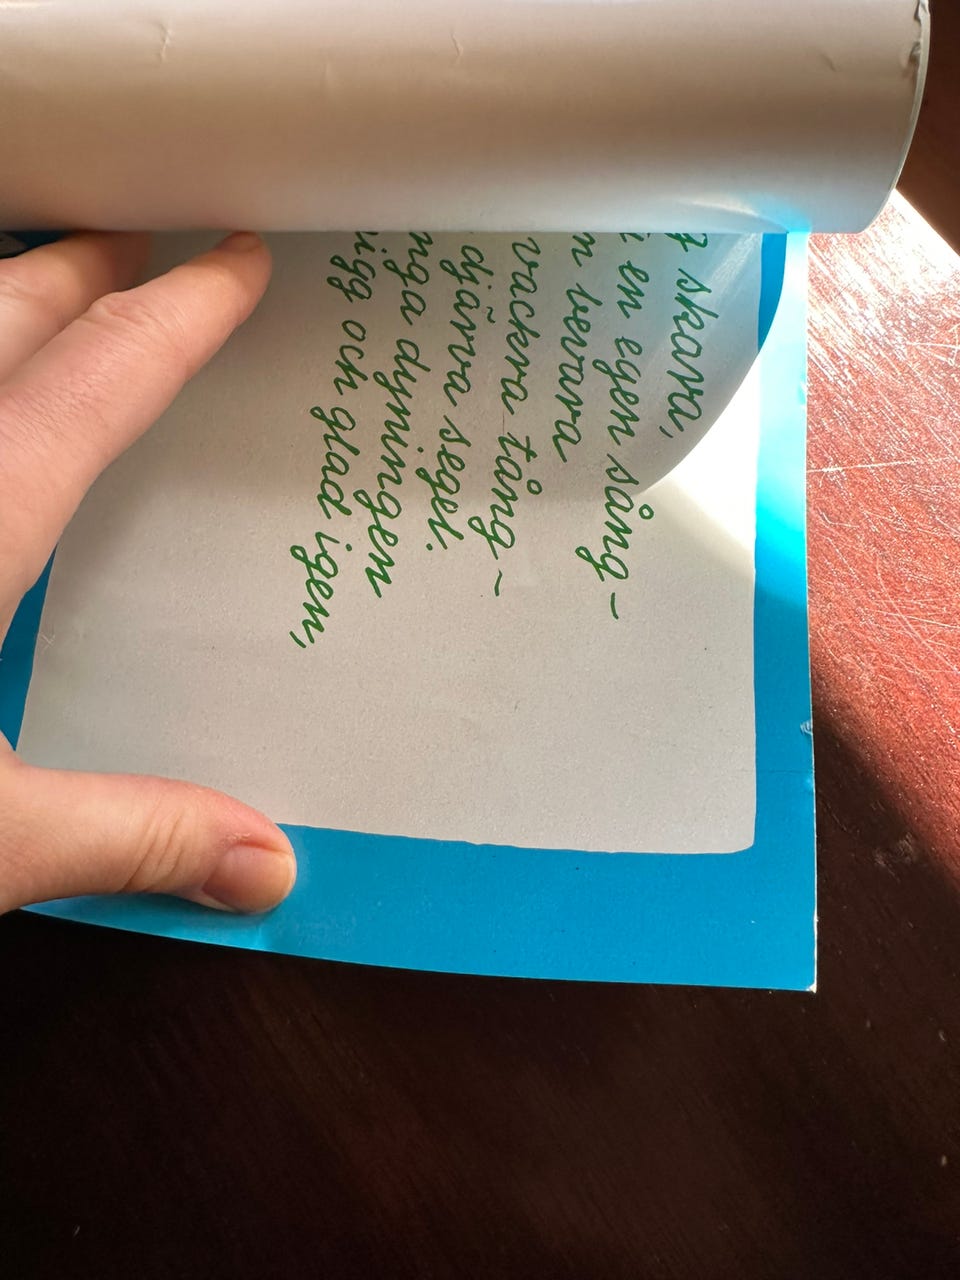 skara,
en egen sång –
bevara
vackra tång –
djärva segel.
dyningen
och glad igen,